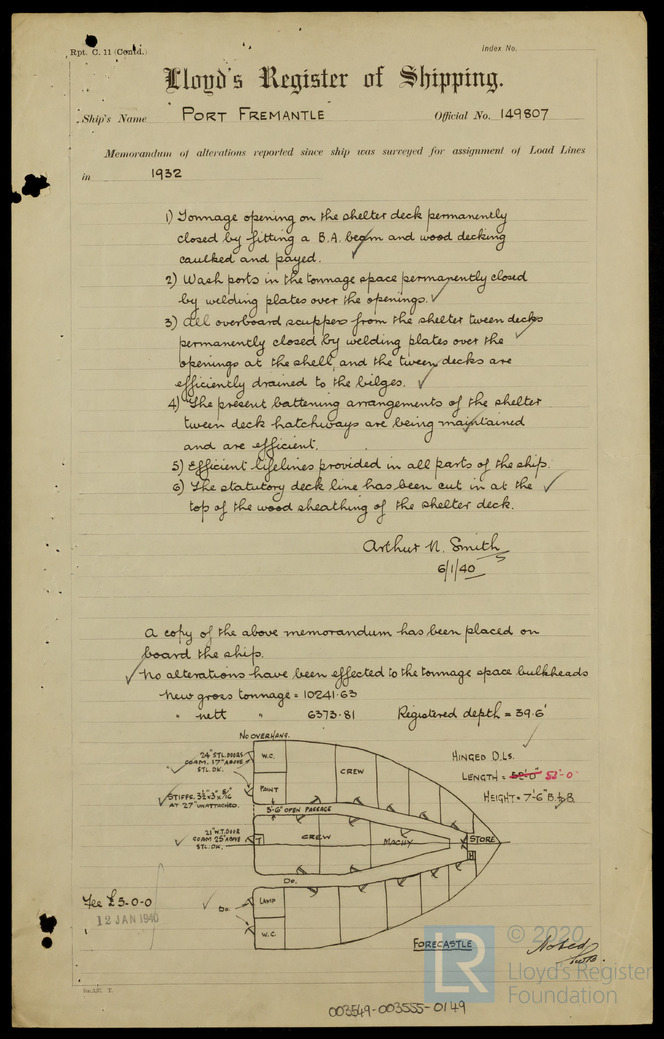 Rpt. C. 11 (Contd.)
Index No.
Lloyd's Register of Shipping.
Ship's Name PORT FREMANTLE Official No. 149807
Memorandum of alterations reported since ship was surveyed for assignment of Load Lines
in 1932
1) Tonnage opening on the shelter deck permanently
closed by fitting a B.A. beam and wood decking
caulked and payed.
2) Wash ports in the tonnage space permanently closed
by welding plates over the openings.
3) All overboard scuppers from the shelter tween decks
permanently closed by welding plates over the
openings at the shell, and the tween decks are
efficiently drained to the bilges.
4) The present battening arrangements of the shelter
tween deck hatchways are being maintained
and are efficient.
5) Efficient lifelines provided in all parts of the ship.
6) The statutory deck line has been cut in at the
top of the wood sheathing of the shelter deck.
Arthur N. Smith
6/1/40
A copy of the above memorandum has been placed on
board the ship.
No alterations have been effected to the tonnage space bulkheads
New gross tonnage = 10241.63
" nett " 6373.81 Registered depth = 39.6'
NO OVERHANG.
24" STL. DOORS
COAM. 17" ABOVE
STL. DK.
W.C.
CREW
HINGED D.LS.
LENGTH = 52'-0" 53'-0"
HEIGHT = 7'-6" B.
STIFFS. 3½"x3"x
AT 27" UNATTACHED.
PAINT
3'-6" OPEN PASSAGE
21" W.T. DOOR
COAM 25" ABOVE
STL. DK.
T
CREW
MACHY
STORE
H
Do.
Do.
LAMP
W.C.
Fee £5-0-0
12 JAN 1940
FORECASTLE
Noted
© 2020
LR
Lloyd's Register
Foundation
003549-003555-0149